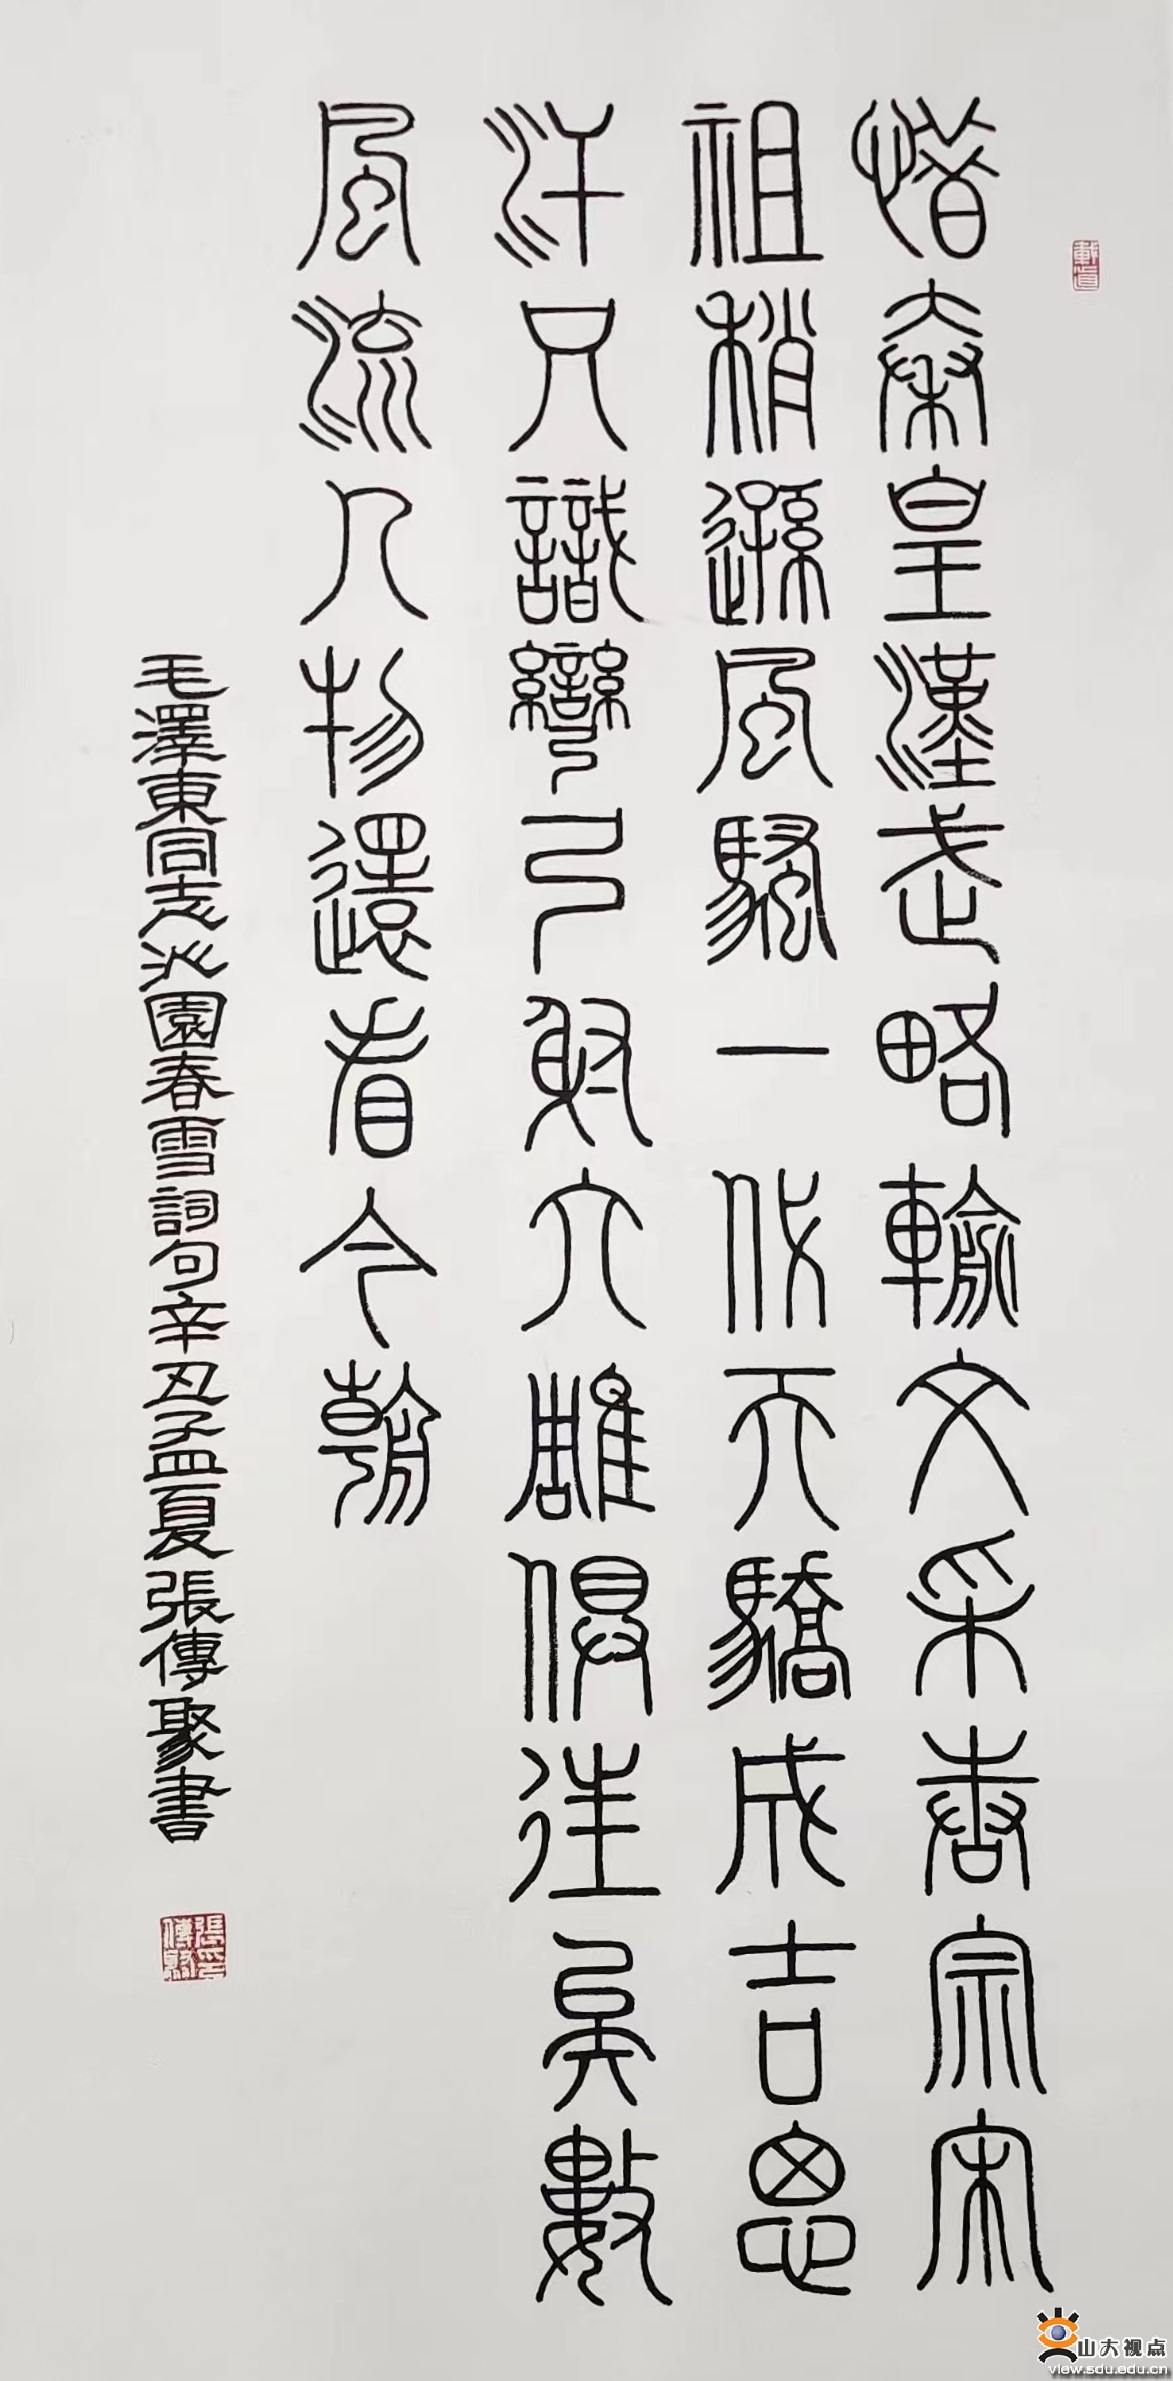 載道
惜秦皇漢武略輸文采唐宗宋
祖稍遜風騷一代天驕成吉思
汗只識彎弓射大雕俱往矣數
風流人物還看今朝
毛澤東同志沁園春雪詞句辛丑孟夏張傳聚書
山大视点
view.sdu.edu.cn